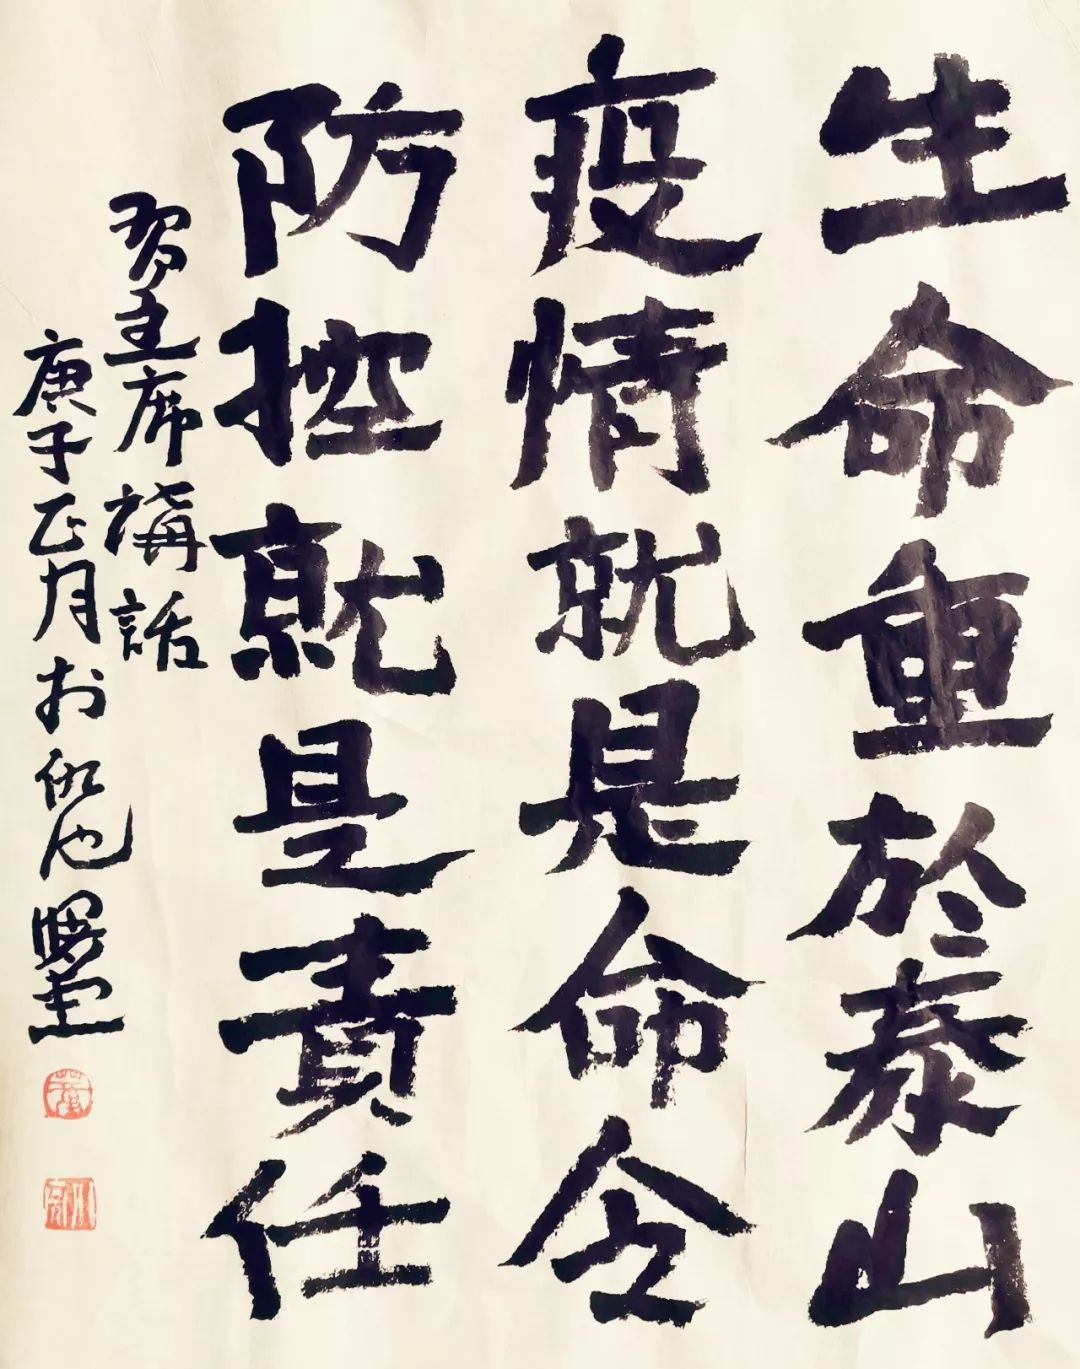 生命重於泰山
疫情就是命令
防控就是責任
習主席講話
庚子正月於仇池